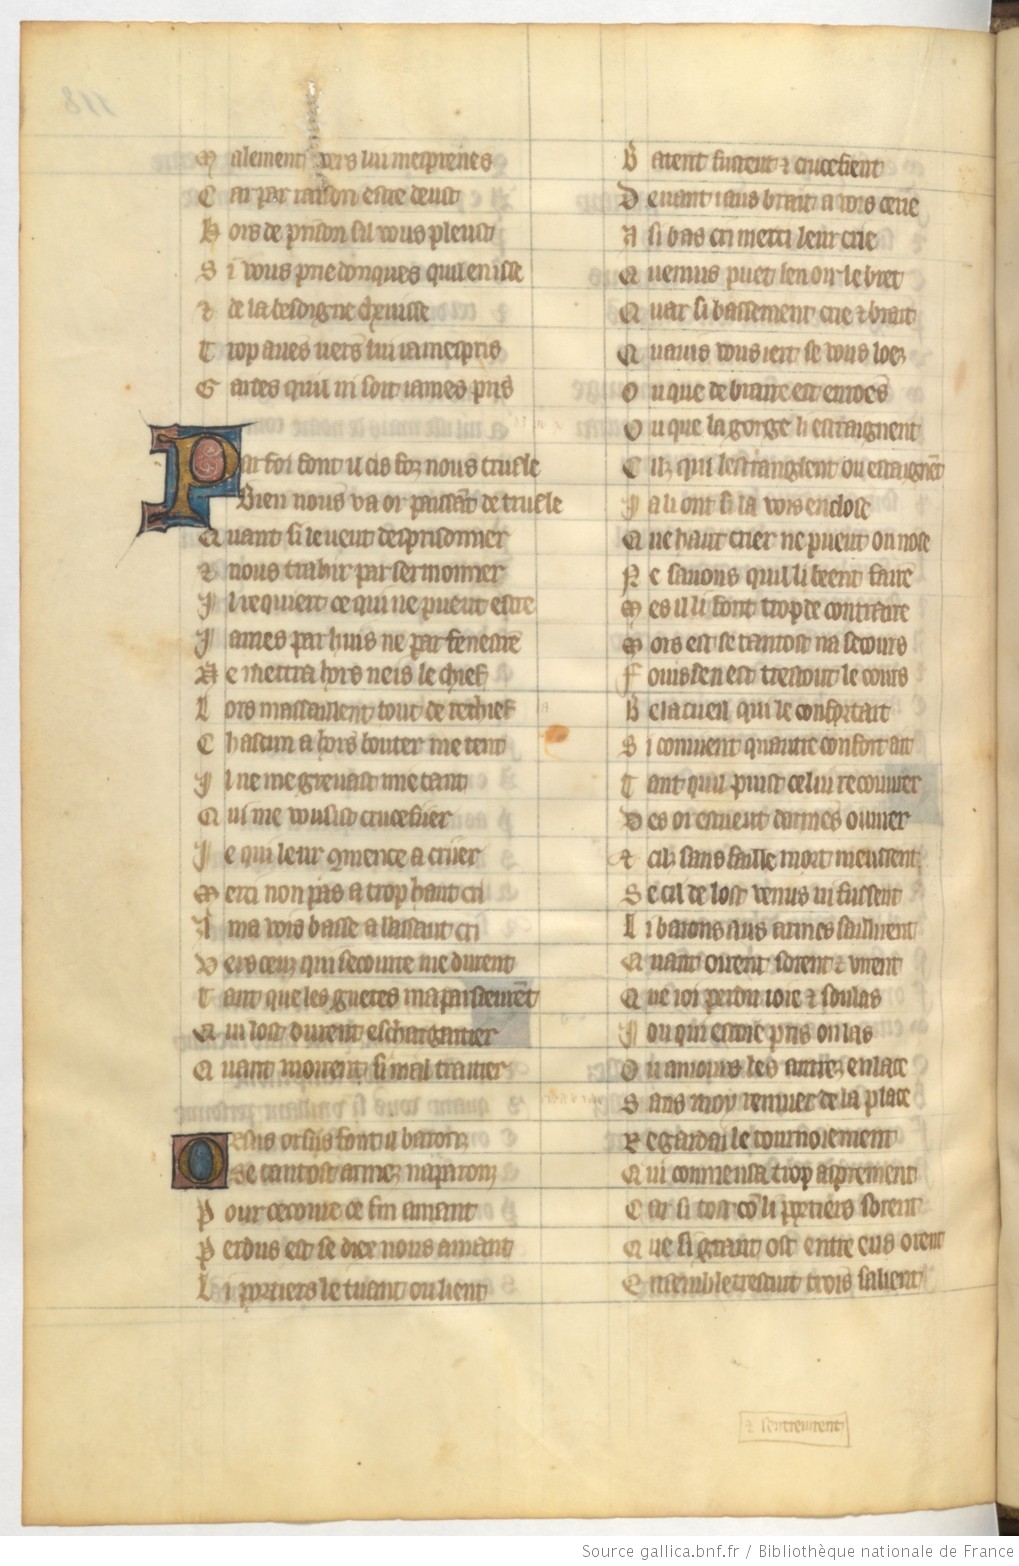 M alement vers lui mesprenes
C ar par raison estre deust
H ors de prison sil vous pleust
S i vous prie donques quil en isse
⁊ de la besoigne chevisse
T rop aves vers lui ia mespris
G ardes quil ni soit iames pris
Par foi font il cis foz nous trufle
Bien nous va or paissāt de trufle
Q uant si le veut desprisonner
⁊ nous trahir par sermonner
I l requiert ce qui ne puet estre
J ames par huis ne par fenestre
N e mettra hors neis le chief
L ors massaillent tout de rechief
C hascun a hors bouter me tent
I l ne me grevast mie tant
Q ui me vousist crucefier
J e qui leur ꝯmence a crier
M erci non pas a trop haut cri
A ma vois basse a lassaut cri
V ers ceuz qui secourre me durent
T ant que les guetes maparseurēt
Q ui lost durent eschargaitier
Q uant moirent si mal traitier
Or sus or sus font il baronz
Se tantost armez naparonz
P our secourre ce fin amant
P erdus est se diex nous amant
L i portiers le tuent ou lient
B atent fustent ⁊ crucefient
D evant iaus brait a vois serie
A si bas cri merci leur crie
Q uenuis puet len oir le bret
Q uar si bassement crie ⁊ brait
Q uavis vous iert se vous loez
O u que de braire est enroes
O u que la gorge li estraignent
C ilz qui lestranglent ou estaignēt
J a li ont si la vois enclose
Q ue haut crier ne puent ou nose
N e savons quil li beent faire
M es il li font trop de contraire
M ors est se tantost na secours
F ouis sen est trestout le cours
B elacueil qui le confortait
S i convient quautre confort ait
T ant quil puist celui recouvrer
D es or estuet darmes ouvrer
⁊ cilz sans faille mort meussent
S e cil de lost venus ni fussent
L i barons aus armes saillirent
Q uant oirent sorent ⁊ virent
Q ue ioi perdu ioie ⁊ soulas
J ou qui estoie pris ou las
O u amours les autrez enlace
S ans moy remuer de la place
R egardai le tournoiement
Q ui commensa trop asprement
C ar si tost cō li portiers sorent
Q ue si grant ost entre eus orent
E nsemble trestout trois salient
⁊ sentreiurent
Source gallica.bnf.fr / Bibliothèque nationale de France